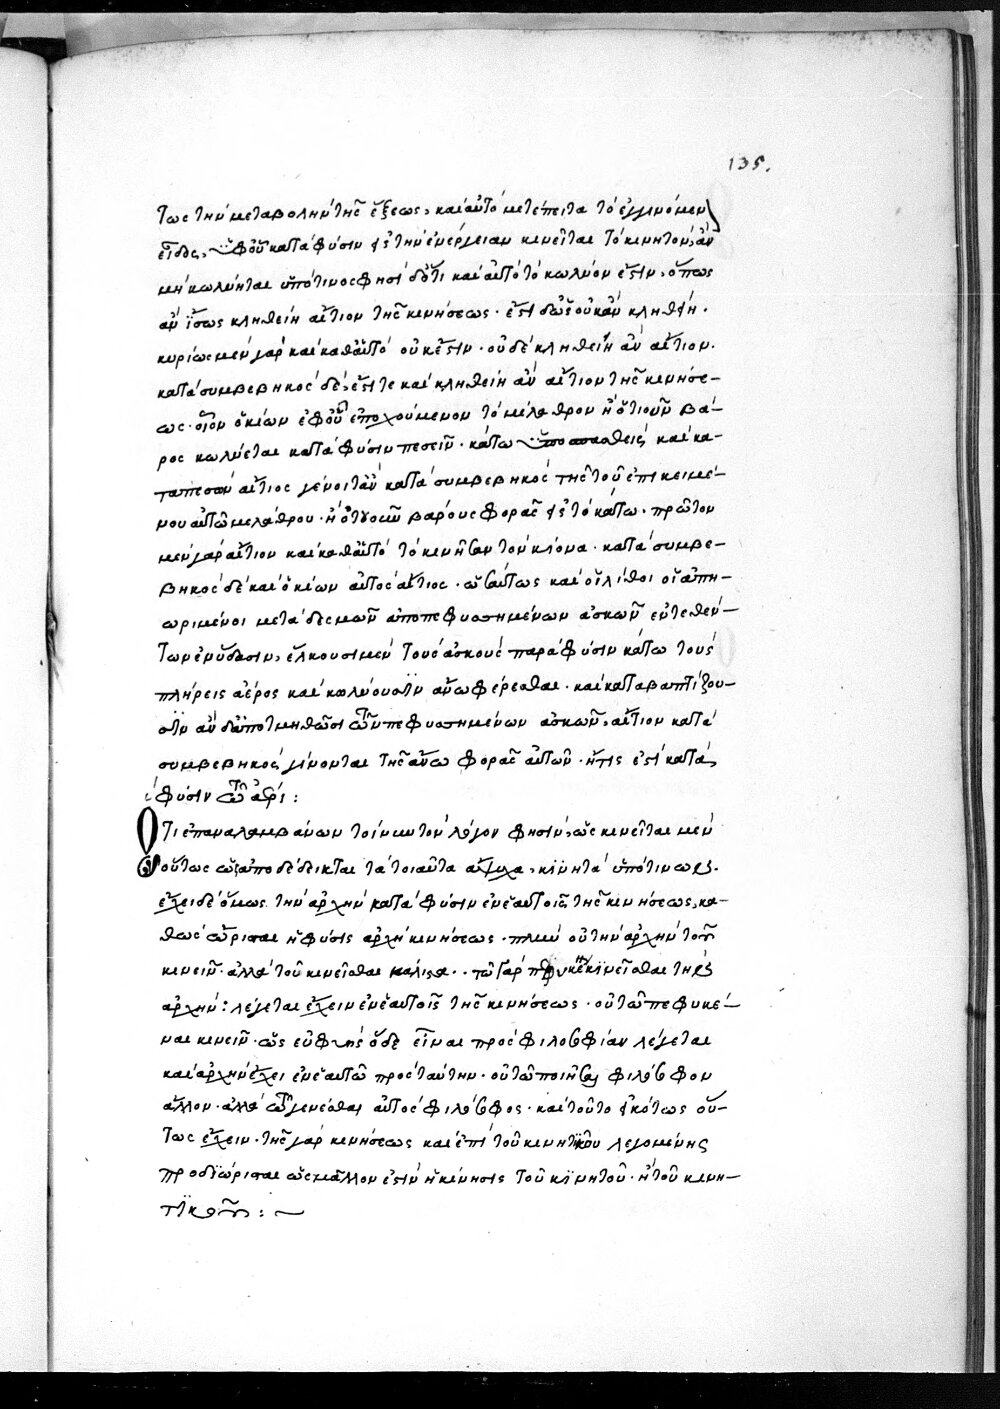 135.
τως τὴν μεταβολὴν τῆς ἕξεως, καὶ αὐτὸ μετέπειτα τὸ ἐγγινόμενον
εἶδος, ὑφ' οὗ κατὰ φύσιν εἰς τὴν ἐνέργειαν κινεῖται τὸ κινητὸν, ἂν
μὴ κωλύηται ὑπό τινος φησὶ δὲ ὅτι καὶ αὐτὸ τὸ κωλῦον ἔστιν, ὅπως
ἂν ἴσως κληθείη αἴτιον τῆς κινήσεως. ἔστι δ' ὡς οὐκ ἂν κληθείη.
κυρίως μὲν γὰρ καὶ καθ' αὑτὸ οὐκ ἔστιν. οὐδὲ κληθείη ἂν αἴτιον.
κατὰ συμβεβηκὸς δέ, ἔστι τε καὶ κληθείη ἂν αἴτιον τῆς κινήσε-
ως. οἷον ὁ κίων ἐφ' οὗ ἐποχούμενον τὸ μέλαθρον ἢ ὁτιοῦν βά-
ρος κωλύεται κατὰ φύσιν πεσεῖν. κάτω ὑποσπασθεὶς καὶ κα-
ταπεσὼν αἴτιος γένοιτ' ἂν κατὰ συμβεβηκὸς τῆς τοῦ ἐπικειμέ-
νου αὐτῶ μελάθρου. ἢ ὁτουοῦν βάρους φορᾶς εἰς τὸ κάτω. πρῶτον
μὲν γὰρ αἴτιον καὶ καθ' αὑτὸ τὸ κινῆσαν τὸν κίονα. κατὰ συμβε-
βηκὸς δὲ καὶ ὁ κίων αὐτὸς αἴτιος. ὡσαύτως καὶ οἱ λίθοι οἱ ἀπη-
ωρημένοι μετὰ δεσμῶν ἀπὸ πεφυσημένων ἀσκῶν ἐντεθέν-
των ἐν ὕδασιν, ἕλκουσι μὲν τοὺς ἀσκοὺς παρὰ φύσιν κάτω τοὺς
πλήρεις ἀέρος καὶ κωλύουσιν ἄνω φέρεσθαι. καὶ καταβαπτίζου-
σιν ἂν δ' ἀποτμηθῶσι τῶν πεφυσημένων ἀσκῶν, αἴτιον κατὰ
συμβεβηκὸς γίνονται τῆς ἄνω φορᾶς αὐτῶν. ἥτις ἐστὶ κατὰ
φύσιν τῶ ἀέρι:
Ὅτι ἐπαναλαμβάνων τοίνυν τὸν λόγον φησὶν, ὡς κινεῖται μὲν
οὕτως ὡς ἀποδέδεικται τὰ τοιαῦτα ἄψυχα, κινητὰ ὑπό τινων.
ἔχει δὲ ὅμως τὴν ἀρχὴν κατὰ φύσιν ἐν ἑαυτοῖς τῆς κινήσεως, κα-
θὼς ὥρισται ἡ φύσις ἀρχὴ κινήσεως. πλὴν οὐ τὴν ἀρχὴν τοῦ
κινεῖν. ἀλλὰ τοῦ κινεῖσθαι μάλιστα. τῶ γὰρ πεφυκέναι κινεῖσθαι
ἀρχὴν: λέγεται ἔχειν ἐν ἑαυτοῖς τῆς κινήσεως. οὐ τῶ πεφυκέ-
ναι κινεῖν. ὡς εὐφυὴς ὅδε εἶναι πρὸς φιλοσοφίαν λέγεται
καὶ ἀρχὴν ἔχει ἐν ἑαυτῶ πρὸς ταύτην. οὐ τῶ ποιῆσαι φιλόσοφον
ἄλλον. ἀλλὰ τῶ γενέσθαι αὐτὸς φιλόσοφος. καὶ τοῦτο εἰκότως οὕ-
τως ἔχειν. τῆς γὰρ κινήσεως καὶ ἐπὶ τοῦ κινητικοῦ λεγομένης
προδιώρισται ὡς μᾶλλον ἐστὶν ἡ κίνησις τοῦ κινητοῦ. ἢ τοῦ κινη-
τικοῦ: ~